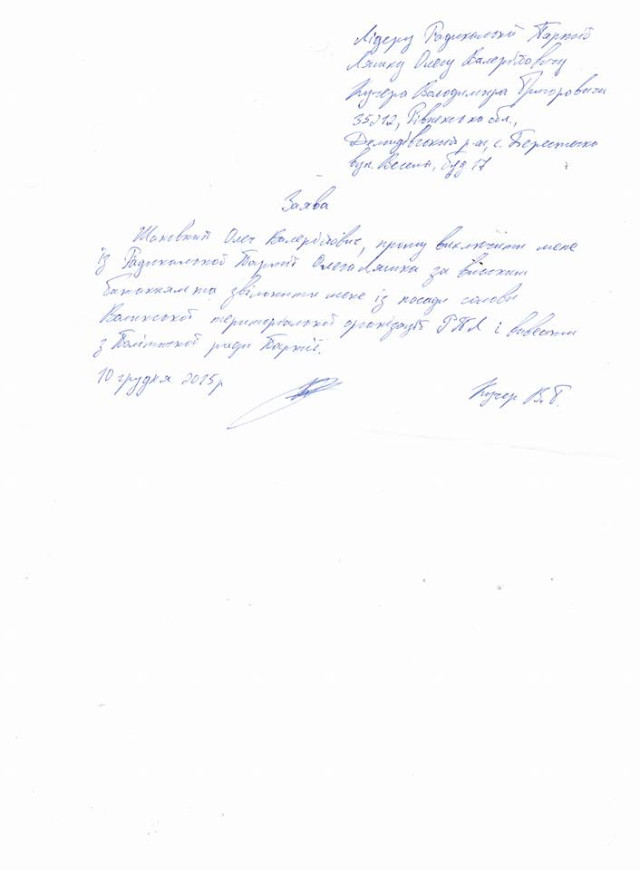 Лідеру Радикальної Партії
Ляшку Олегу Валерійовичу
Кучера Володимира Григоровича
35212, Рівненська обл.,
Демидівський р-н, с. Берестечко
вул. Весела, буд 17
Заява
Шановний Олег Валерійович, прошу виключити мене
із Радикальної Партії Олега Ляшка за власним
бажанням та звільнити мене із посади голови
Волинської територіальної організації РПЛ і вивести
з Політичної ради Партії.
10 грудня 2015р
Кучер В.Г.